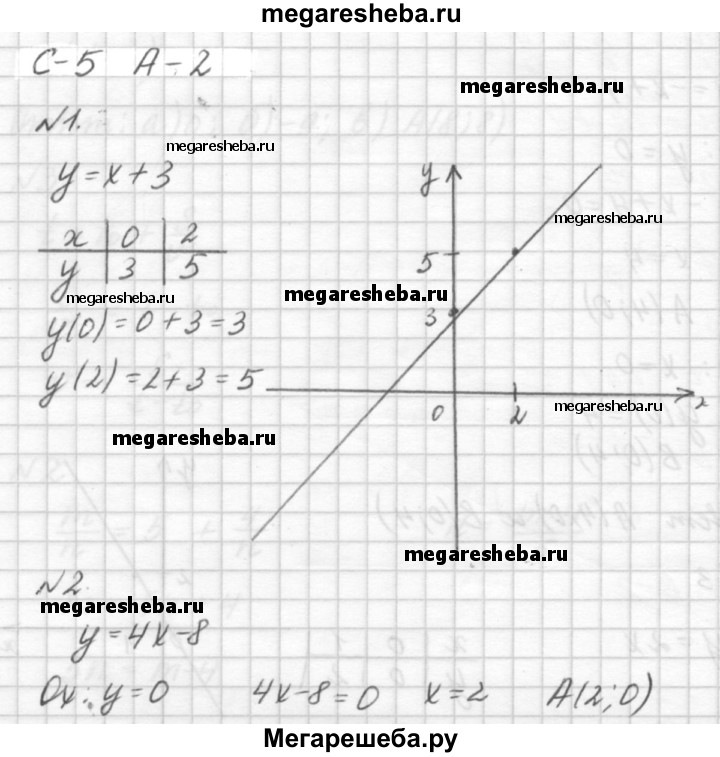 megaresheba.ru
С-5 А-2
megaresheba.ru
№1.
megaresheba.ru
y=x+3
y
megaresheba.ru
x 0 2
y 3 5
5
megaresheba.ru
megaresheba.ru
3
y(0)=0+3=3
y(2)=2+3=5
0 2 x
megaresheba.ru
megaresheba.ru
megaresheba.ru
№2.
megaresheba.ru
y=4x-8
Ox: y=0 4x-8=0 x=2 A(2;0)
Мегарешеба.ру